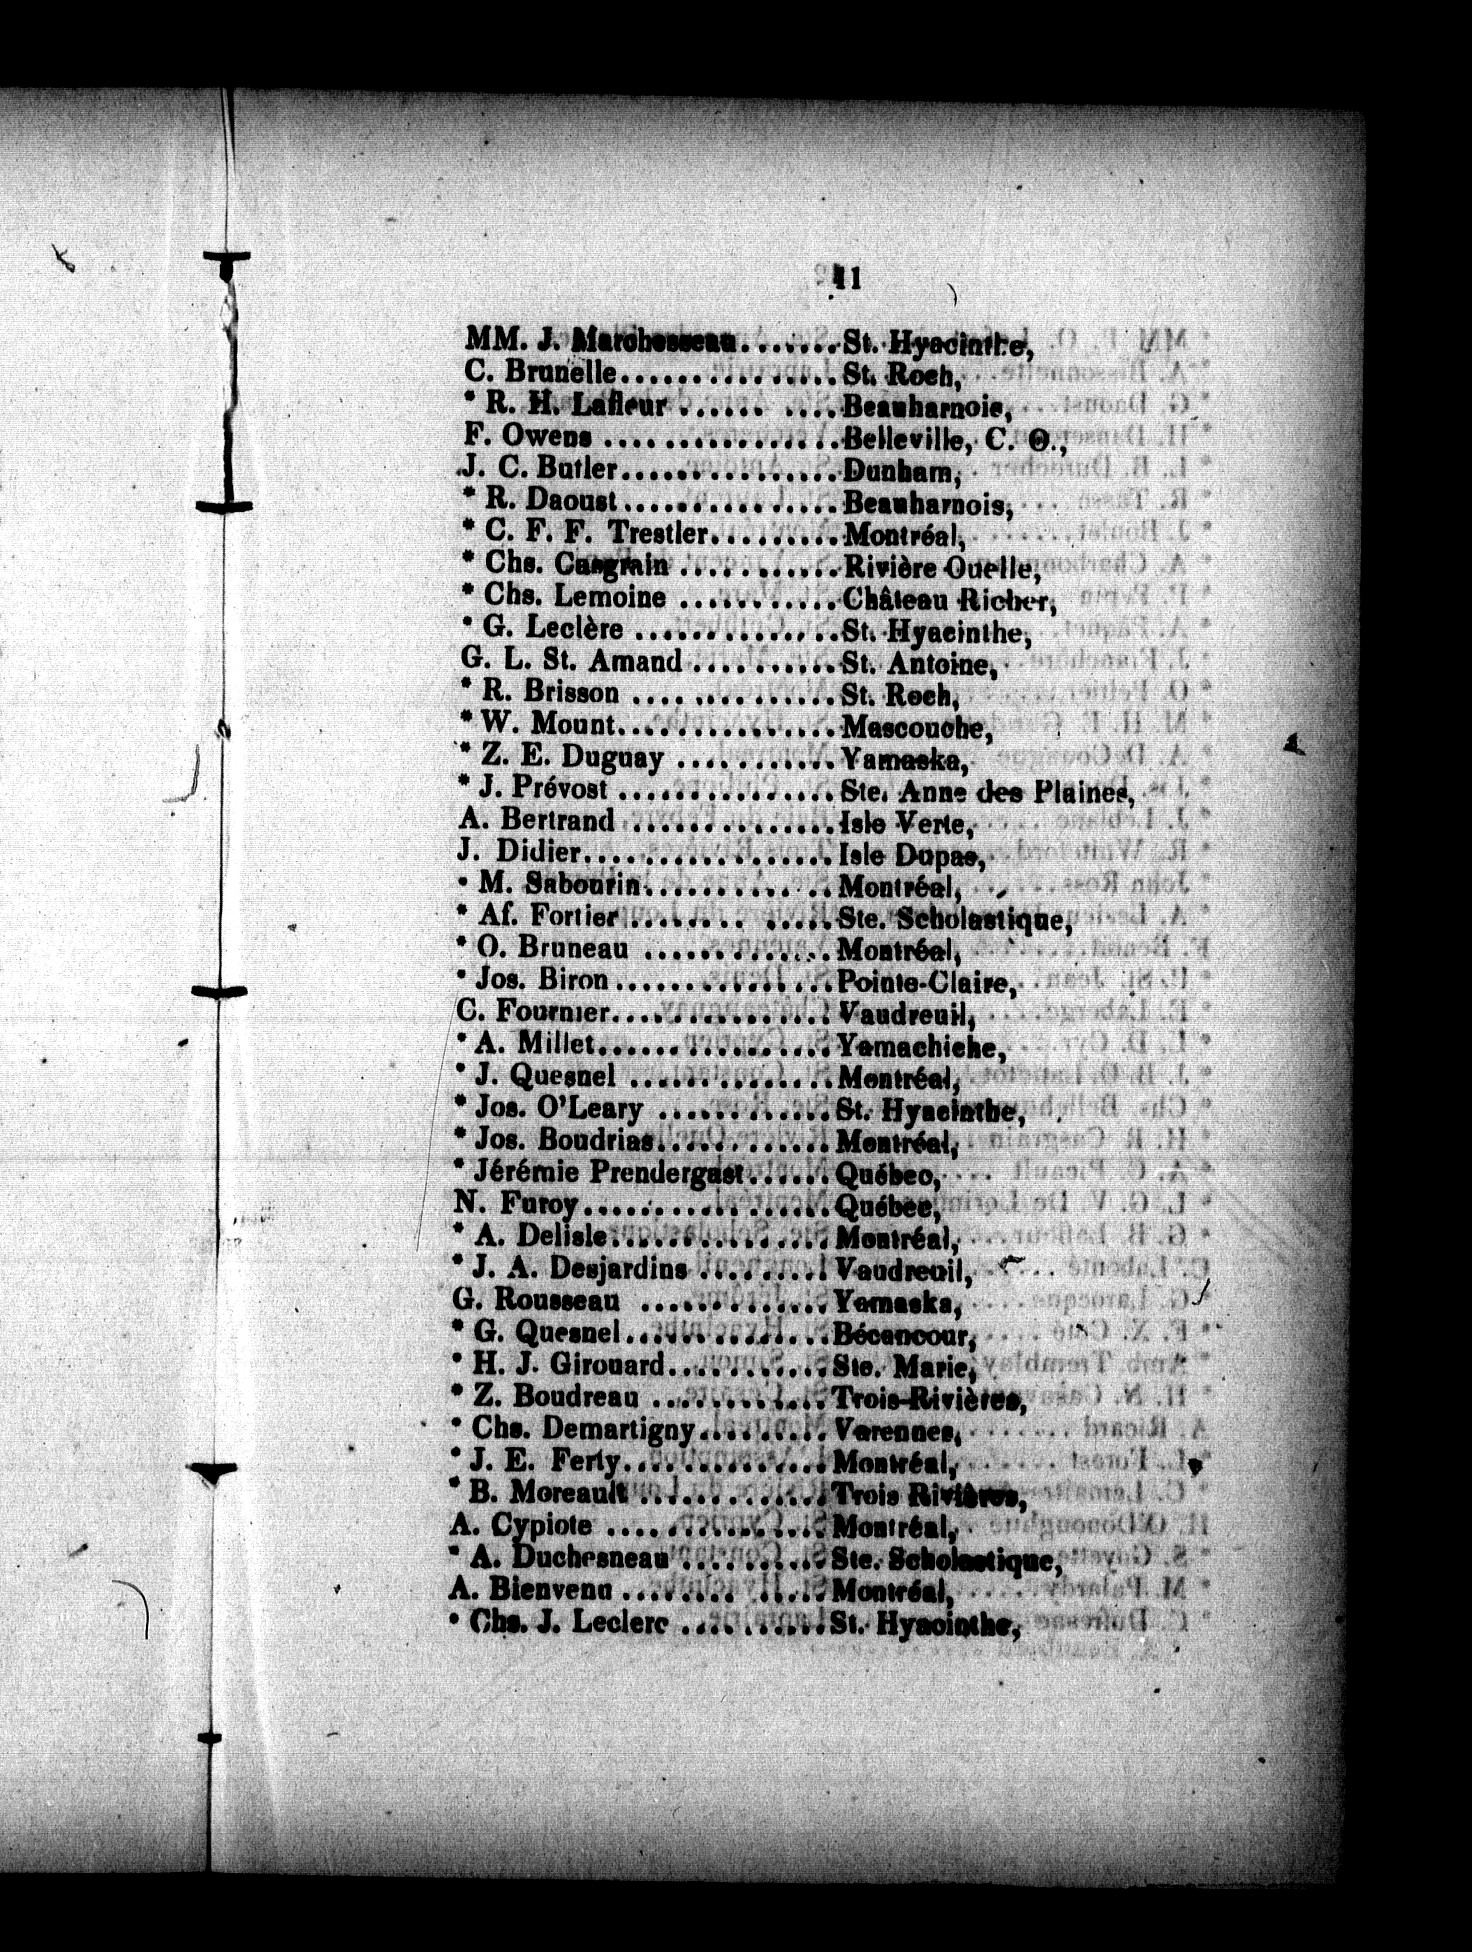 11
MM. J. Marchesseau.......St. Hyacinthe,
C. Brunelle...............St. Roch,
* R. H. Lafleur ...... ....Beauharnois,
F. Owens .................Belleville, C. O.,
J. C. Butler...............Dunham,
* R. Daoust...............Beauharnois,
* C. F. F. Trestler.........Montréal,
* Chs. Casgrain ...........Rivière Ouelle,
* Chs. Lemoine ...........Château Richer,
* G. Leclère ..............St. Hyacinthe,
G. L. St. Amand ..........St. Antoine,
* R. Brisson ..............St. Roch,
* W. Mount...............Mascouche,
* Z. E. Duguay ...........Yamaska,
* J. Prévost ...............Ste. Anne des Plaines,
A. Bertrand ..............Isle Verte,
J. Didier..................Isle Dupas,
* M. Sabourin.............Montréal,
* Af. Fortier ........ .....Ste. Scholastique,
* O. Bruneau .............Montréal,
* Jos. Biron...............Pointe-Claire,
C. Fournier...............Vaudreuil,
* A. Millet.................Yamachiche,
* J. Quesnel ..............Montréal,
* Jos. O'Leary ............St. Hyacinthe,
* Jos. Boudrias............Montréal,
* Jérémie Prendergast......Québec,
N. Furoy..................Québec,
* A. Delisle...............Montréal,
* J. A. Desjardins .........Vaudreuil,
G. Rousseau .............Yamaska,
* G. Quesnel..............Bécancour,
* H. J. Girouard...........Ste. Marie,
* Z. Boudreau ............Trois-Rivières,
* Chs. Demartigny.........Varennes,
* J. E. Ferty..............Montréal,
* B. Moreault .............Trois Rivières,
A. Cypiote ...............Montréal,
* A. Duchesneau ..........Ste. Scholastique,
A. Bienvenu ........ ......Montréal,
* Chs. J. Leclerc ..........St. Hyacinthe,